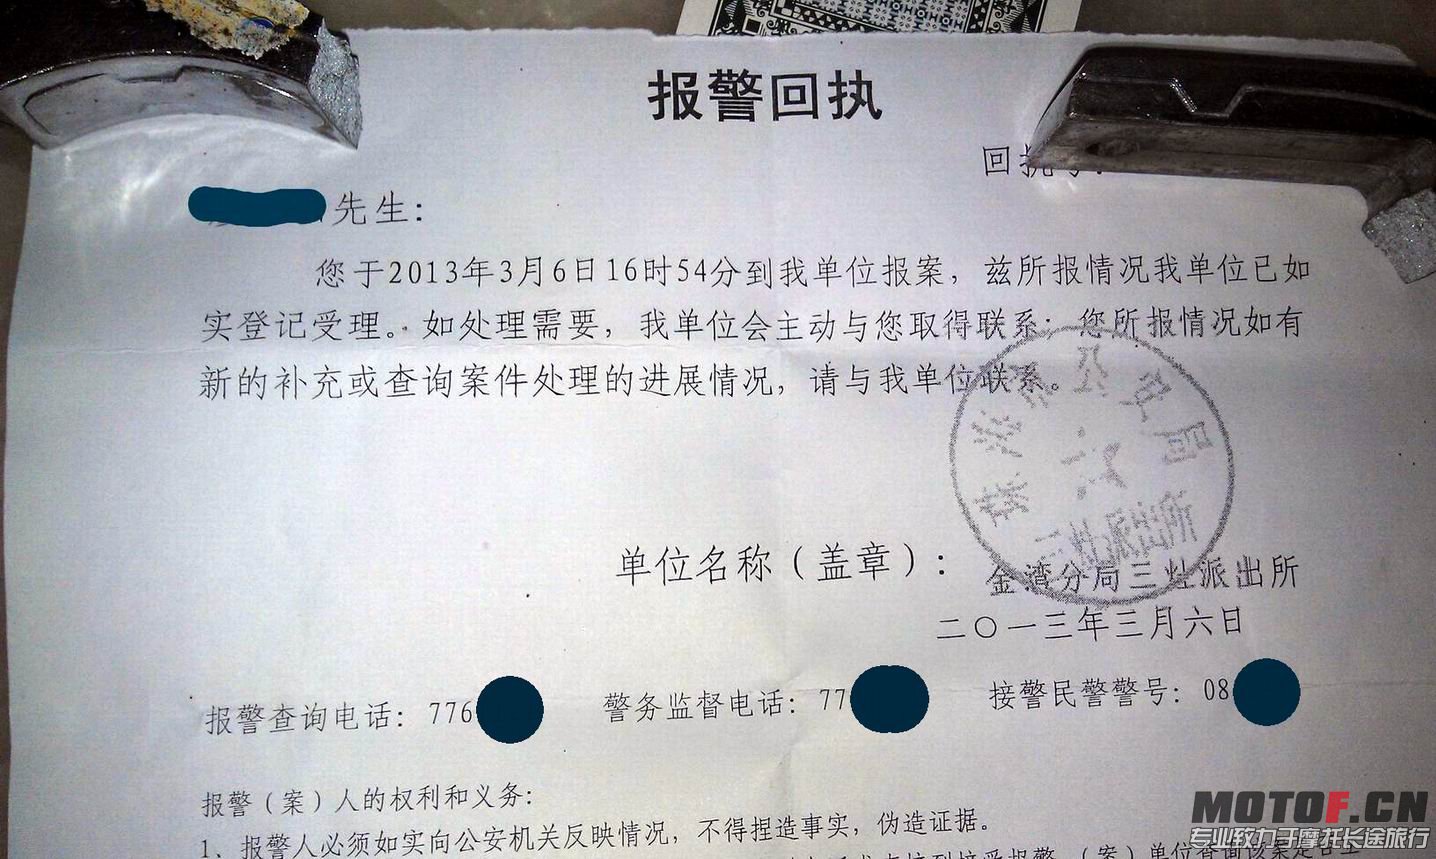 报警回执
回执号：
先生：
您于2013年3月6日16时54分到我单位报案，兹所报情况我单位已如
实登记受理。如处理需要，我单位会主动与您取得联系；您所报情况如有
新的补充或查询案件处理的进展情况，请与我单位联系。
珠海市公安局
三灶派出所
单位名称（盖章）：
金湾分局三灶派出所
二〇一三年三月六日
报警查询电话：776 警务监督电话：77 接警民警警号：08
报警（案）人的权利和义务：
1、报警人必须如实向公安机关反映情况，不得捏造事实，伪造证据。
接受报警（案）单位查询该案是否立
MOTOF.CN
专业致力于摩托长途旅行